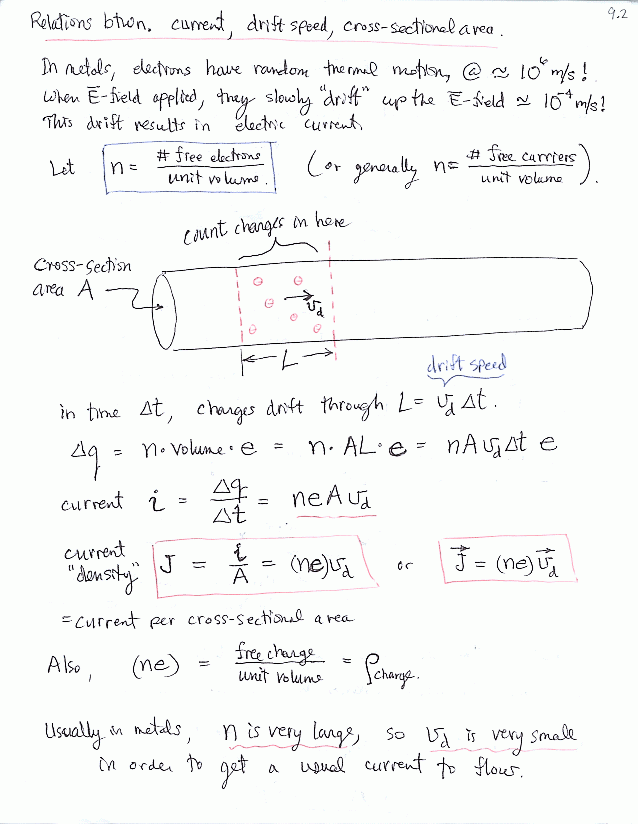 9.2
Relations btwn. current, drift speed, cross-sectional area.
In metals, electrons have random thermal motion, @ ≈ 10⁶ m/s!
When E̅-field applied, they slowly "drift" up the E̅-field ≈ 10⁻⁴ m/s!
This drift results in electric current.
Let n = # free electrons / unit volume. (or generally n = # free carriers / unit volume).
count charges in here
cross-section
area A
v_d
L
drift speed
in time Δt, charges drift through L = v_d Δt.
Δq = n·volume·e = n·AL·e = nAv_dΔt e
current i = Δq/Δt = neAv_d
current
"density" J = i/A = (ne)v_d or J⃗ = (ne)v⃗_d
= current per cross-sectional area
Also, (ne) = free charge / unit volume = ρ_charge.
Usually in metals, n is very large, so v_d is very small
in order to get a usual current to flow.